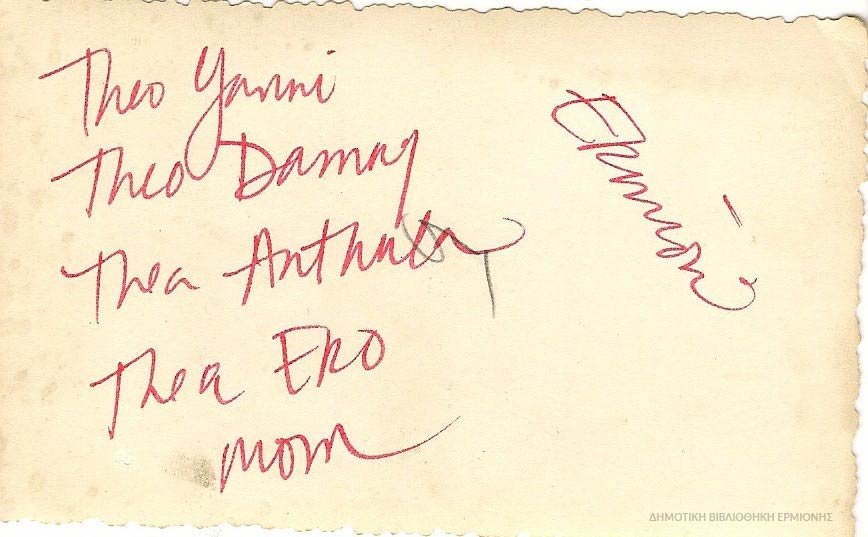 Theo Yanni
Theo Damay
Thea Anthula
Thea Eko
mom
Ermioni
ΔΗΜΟΤΙΚΗ ΒΙΒΛΙΟΘΗΚΗ ΕΡΜΙΟΝΗΣ